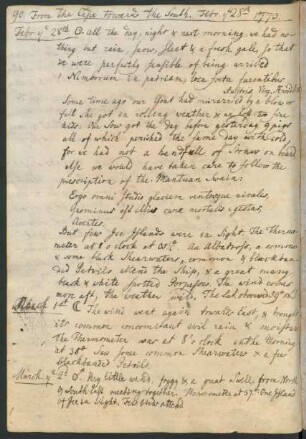 90 From the Cape towards the South. Feb. yᵉ 28ᵗʰ 1773.
Feb. yᵉ 28ᵗʰ ☉. all the day, night & next morning we had no
thing but rain, snow, sleet & a fresh gale, so that
we were perfectly sensible of being arrived
Nimborum in patriam, loca foeta furentibus
austris. Virg. Aeneid
Some time ago our Goat had miscarried by a blow or
fall she got in rolling weather &
kids. Our Sow got the day before yesterday 9 pigs
all of which perished the same day with cold,
for we had not a handfull of Straw on board
else we would have taken care to follow the
prescription of the Mantuan Swain:
Ergo omni studio glaciem ventosque nivales
quo minus est illis curae mortalis egestas,
Avertes.
But four Ice Islands were in Sight. The Thermo-
meter at 8 o'clock at An Albatross, a common
& some black Shearwaters, common & blackban-
ded Petrils attend the Ship, & a great many
black & white spotted Porpesses. The wind comes
more aft, the weather
March 1ˢᵗ ☾. The wind went again towards East, & brought
its common concomitant evil rain & moisture
the Thermometer was at 8 o'clock in the Morning
at 36°. Saw some common Shearwaters & a few
blackbanded Petrils.
March yᵉ 2ᵈ ♂. Very little wind, foggy & a great Swell from North
& South East meeting together. Thermometer at 37°. One Island
of Ice in Sight. Few birds attend